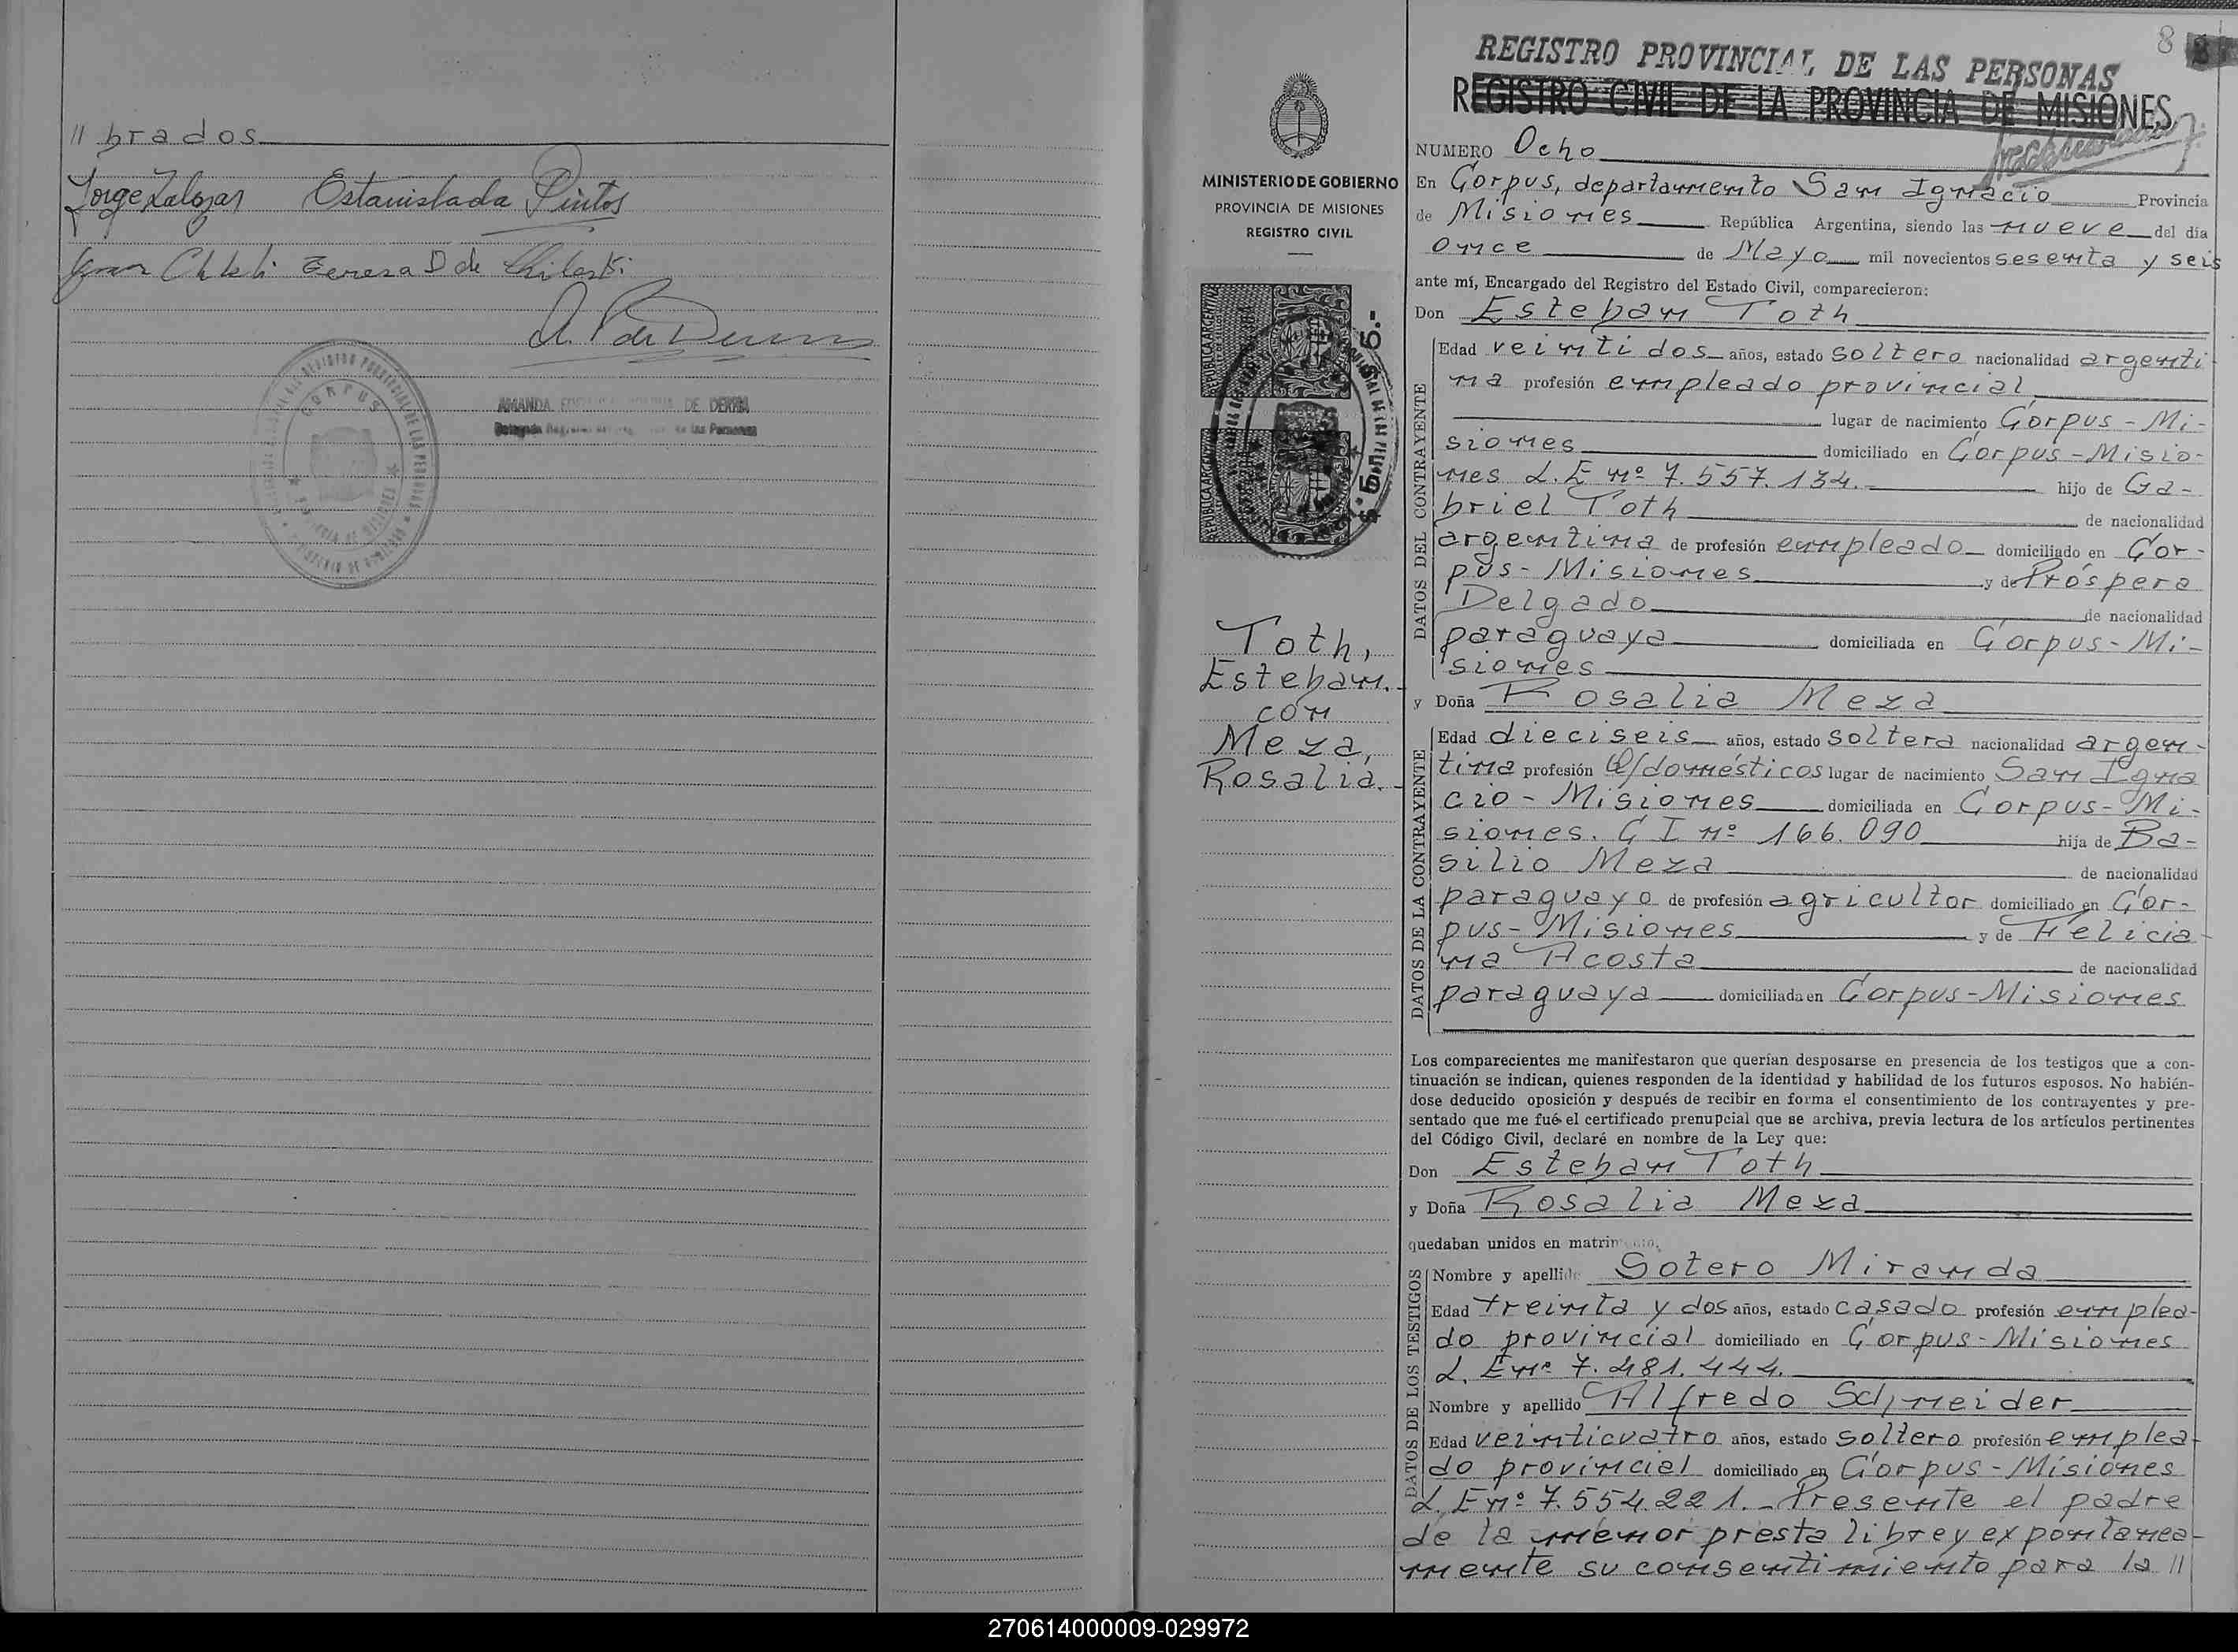 // brados
Jorge Zalozar Estanislada Pintos
Teresa D de
CORPUS
AMANDA DE DERNA
de las Personas
8
REGISTRO PROVINCIAL DE LAS PERSONAS
REGISTRO CIVIL DE LA PROVINCIA DE MISIONES
MINISTERIO DE GOBIERNO
PROVINCIA DE MISIONES
REGISTRO CIVIL
REPUBLICA ARGENTINA
$ 5.-
REPUBLICA ARGENTINA
$ 5.-
Toth,
Esteban.-
con
Meza,
Rosalia.-
NUMERO Ocho
En Corpus, departamento San Ignacio Provincia
de Misiones República Argentina, siendo las nueve del día
once de Mayo mil novecientos sesenta y seis
ante mí, Encargado del Registro del Estado Civil, comparecieron:
Don Esteban Toth
DATOS DEL CONTRAYENTE
Edad veinti dos años, estado soltero nacionalidad argenti-
na profesión empleado provincial
lugar de nacimiento Corpus - Mi-
siones domiciliado en Corpus - Misio-
nes L. E nº 7.557.134. hijo de Ga-
briel Toth de nacionalidad
argentina de profesión empleado domiciliado en Cor-
pus - Misiones y de Próspera
Delgado de nacionalidad
paraguaya domiciliada en Corpus - Mi-
siones
y Doña Rosalia Meza
DATOS DE LA CONTRAYENTE
Edad dieciseis años, estado soltera nacionalidad argen-
tina profesión Q/domésticos lugar de nacimiento San Igna
cio - Misiones domiciliada en Corpus - Mi-
siones. C I nº 166.090 hija de Ba-
silio Meza de nacionalidad
paraguayo de profesión agricultor domiciliado en Cor-
pus - Misiones y de Felicia-
na Acosta de nacionalidad
paraguaya domiciliada en Corpus - Misiones
Los comparecientes me manifestaron que querían desposarse en presencia de los testigos que a con-
tinuación se indican, quienes responden de la identidad y habilidad de los futuros esposos. No habién-
dose deducido oposición y después de recibir en forma el consentimiento de los contrayentes y pre-
sentado que me fué el certificado prenupcial que se archiva, previa lectura de los artículos pertinentes
del Código Civil, declaré en nombre de la Ley que:
Don Esteban Toth
y Doña Rosalia Meza
quedaban unidos en matrimonio.
DATOS DE LOS TESTIGOS
Nombre y apellido Sotero Miranda
Edad treinta y dos años, estado casado profesión emplea-
do provincial domiciliado en Corpus - Misiones
L. E nº 7.481.444.
Nombre y apellido Alfredo Schneider
Edad veinticuatro años, estado soltero profesión emplea-
do provincial domiciliado en Corpus - Misiones
L. E nº 7.554.221. - Presente el padre
de la menor presta libre y expontanea-
mente su consentimiento para la //
270614000009-029972